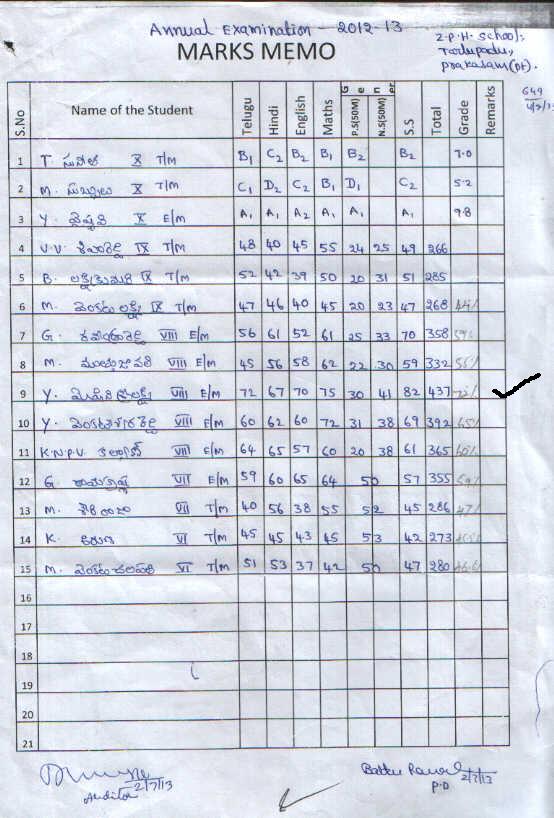 Annual Examination - 2012-13
MARKS MEMO
Z.P.H. School,
prakasam(Dt).
649
S.No Name of the Student Telugu Hindi English Maths Gen P.S(50M) N.S(50M) S.S Total Grade Remarks
1 T. X T/M B1 C2 B2 B1 B2 B2 7.0
2 M. X T/M C1 D2 C2 B1 D1 C2 5.2
3 Y. వైష్ణవి X E/M A1 A1 A2 A1 A1 A1 9.8
4 V.V. శివారెడ్డి IX T/M 48 40 45 55 24 25 49 266
5 B. లక్ష్మీకుమారి IX T/M 52 42 39 50 20 31 51 285
6 M. వెంకటలక్ష్మి IX T/M 47 46 40 45 20 23 47 268
7 G. VIII E/M 56 61 52 61 25 33 70 358
8 M. VIII E/M 45 56 58 62 22 30 59 332
9 Y. VIII E/M 72 67 70 75 30 41 82 437
10 Y. VIII E/M 60 62 60 72 31 38 69 392
11 K.N.P.V. కళ్యాణ్ VIII E/M 64 65 57 60 20 38 61 365
12 G. రామకృష్ణ VII E/M 59 60 65 64 50 57 355
13 M. VII T/M 40 56 38 55 52 45 286
14 K. VI T/M 45 45 43 45 53 42 273
15 M. వెంకటచలపతి VI T/M 51 53 37 42 50 47 280
16
17
18
19
20
21
2/7/13
Auditor
2/7/13
P.D